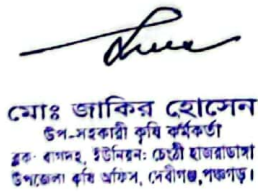 মোঃ জাকির হোসেন
উপ-সহকারী কৃষি কর্মকর্তা
ব্লক- বাগদহ, ইউনিয়ন: চেংঠী হাজরাডাঙ্গা
উপজেলা কৃষি অফিস, দেবীগঞ্জ,পঞ্চগড়।